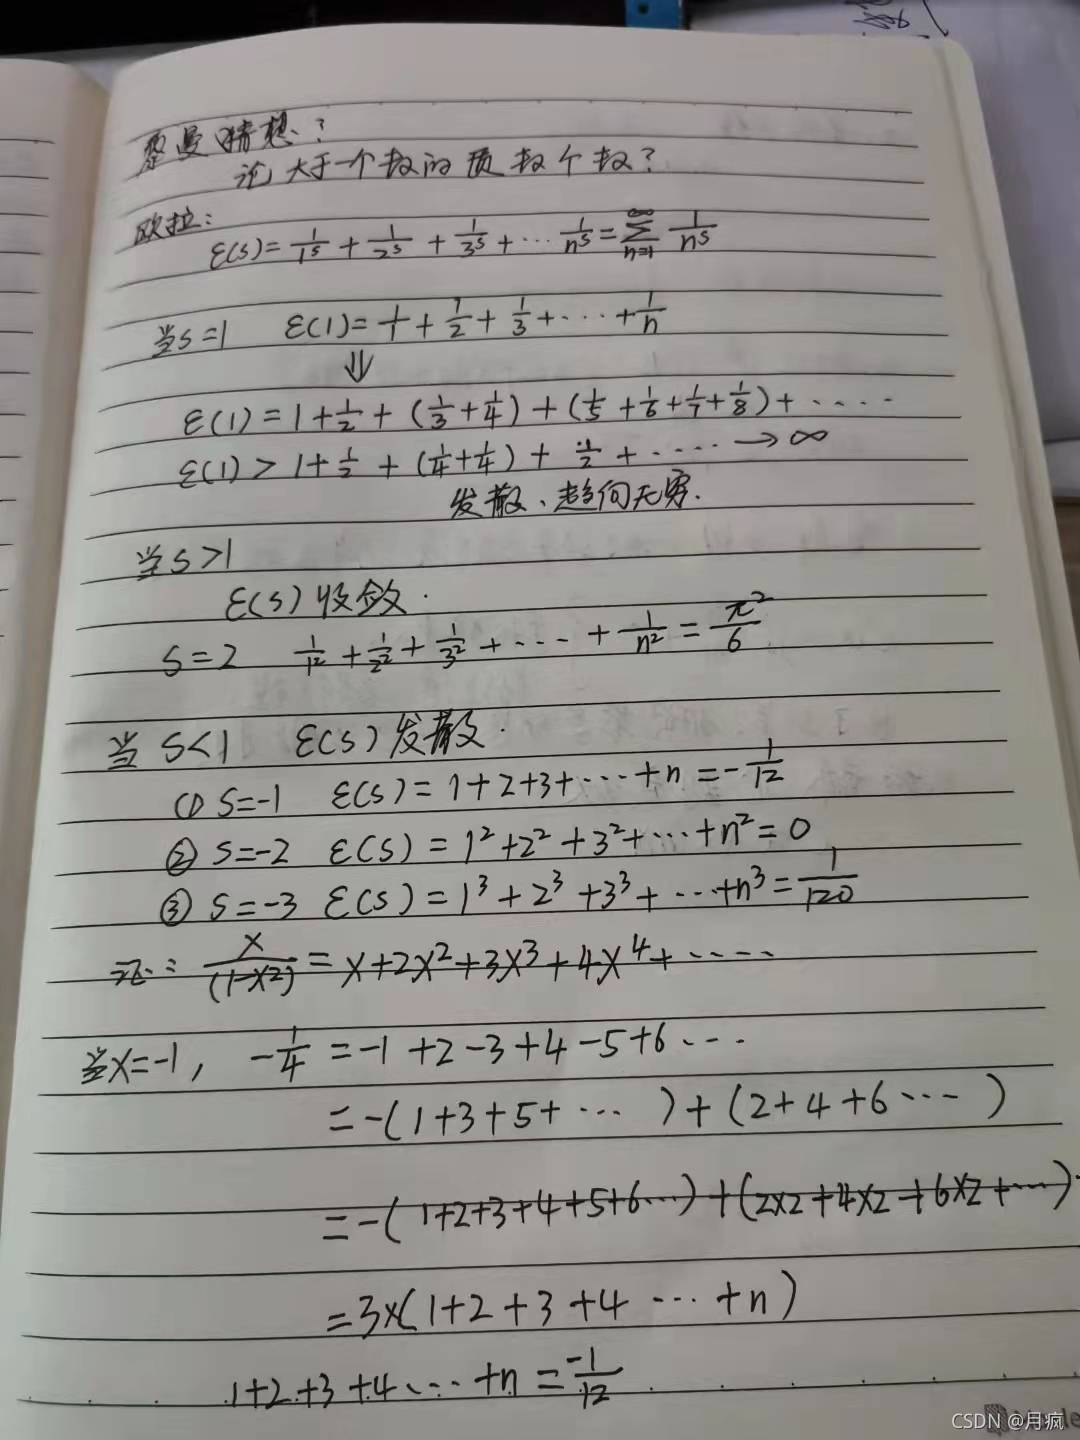 黎曼猜想:?
论大于一个数的质数个数?
欧拉:
ε(s)=1/1^s + 1/2^s + 1/3^s + ... 1/n^s = ∑_{n=1}^{∞} 1/n^s
当s=1 ε(1)=1/1 + 1/2 + 1/3 + ... + 1/n
⇓
ε(1)=1+1/2+(1/3+1/4)+(1/5+1/6+1/7+1/8)+....
ε(1)>1+1/2+(1/4+1/4)+1/2+....→∞
发散、趋向无穷.
当s>1
ε(s)收敛.
s=2 1/1^2 + 1/2^2 + 1/3^2 + ... + 1/n^2 = π^2/6
当s<1 ε(s)发散.
(1) s=-1 ε(s)=1+2+3+...+n=-1/12
② s=-2 ε(s)=1^2+2^2+3^2+...+n^2=0
③ s=-3 ε(s)=1^3+2^3+3^3+...+n^3=1/120
证: x/(1-x2)=x+2x^2+3x^3+4x^4+....
当x=-1, -1/4=-1+2-3+4-5+6...
=-(1+3+5+... )+(2+4+6... )
=-(1+2+3+4+5+6...)+(2x2+4x2+6x2+...)
=3x(1+2+3+4 ... +n)
1+2+3+4...+n=-1/12
CSDN @月疯